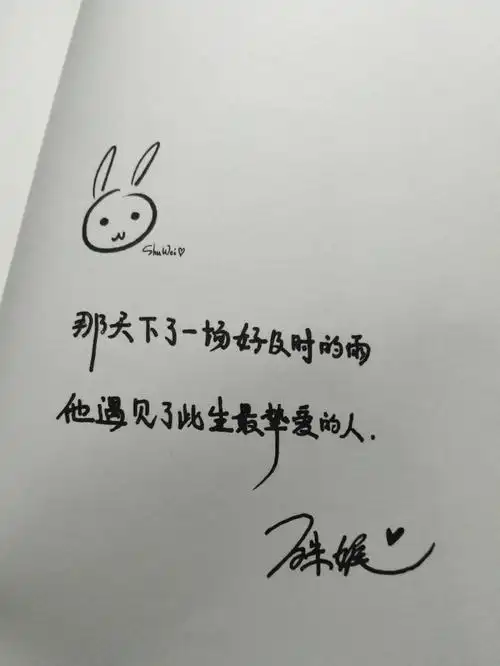 ShuWei♡
那天下了一场好及时的雨
他遇见了此生最挚爱的人.